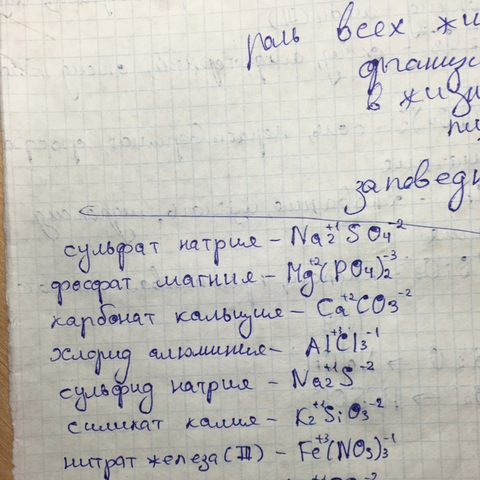 роль всех жи
организ
в жиз
пи
заповедн
сульфат натрия – Na₂⁺¹SO₄⁻²
фосфат магния – Mg⁺²(PO₄)₂⁻³
карбонат кальция – Ca⁺²CO₃⁻²
хлорид алюминия – Al⁺³Cl₃⁻¹
сульфид натрия – Na₂⁺¹S⁻²
силикат калия – K₂⁺¹SiO₃⁻²
нитрат железа (III) – Fe⁺³(NO₃)₃⁻¹